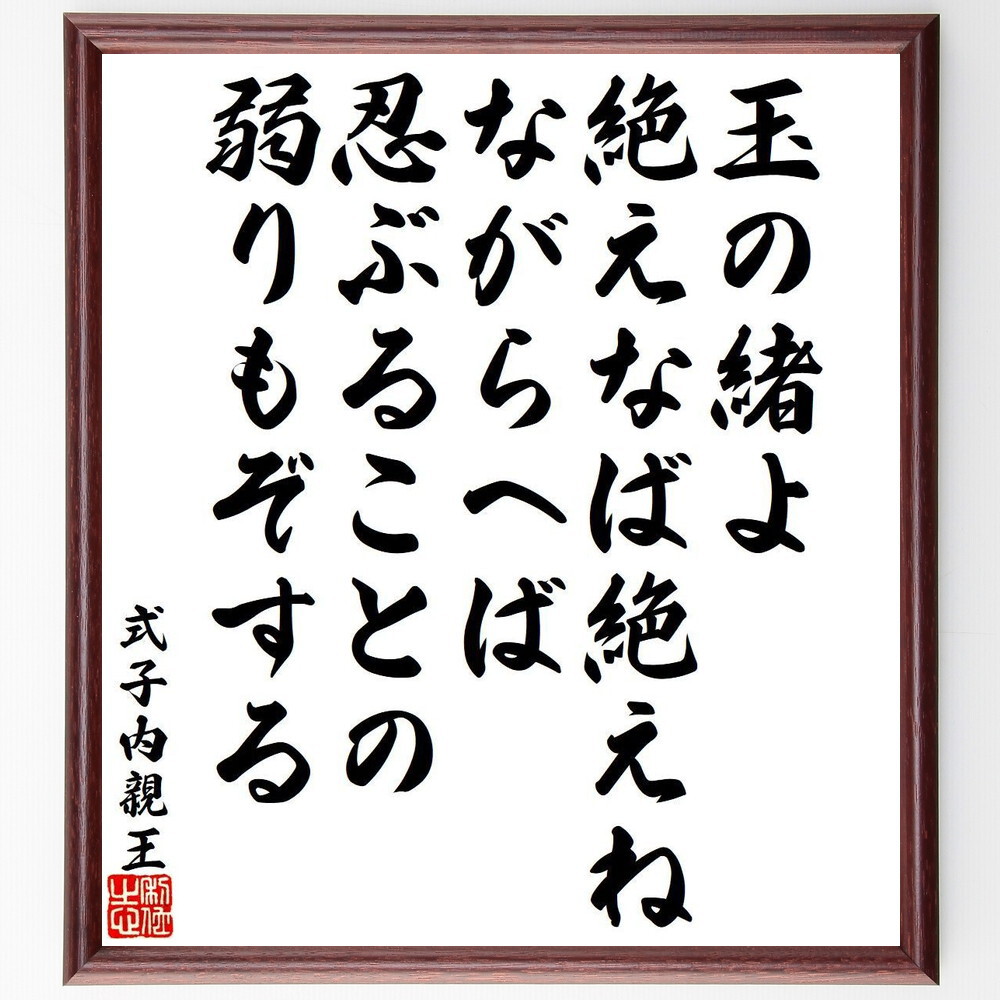 玉の緒よ
絶えなば絶えね
ながらへば
忍ぶることの
弱りもぞする
式子内親王